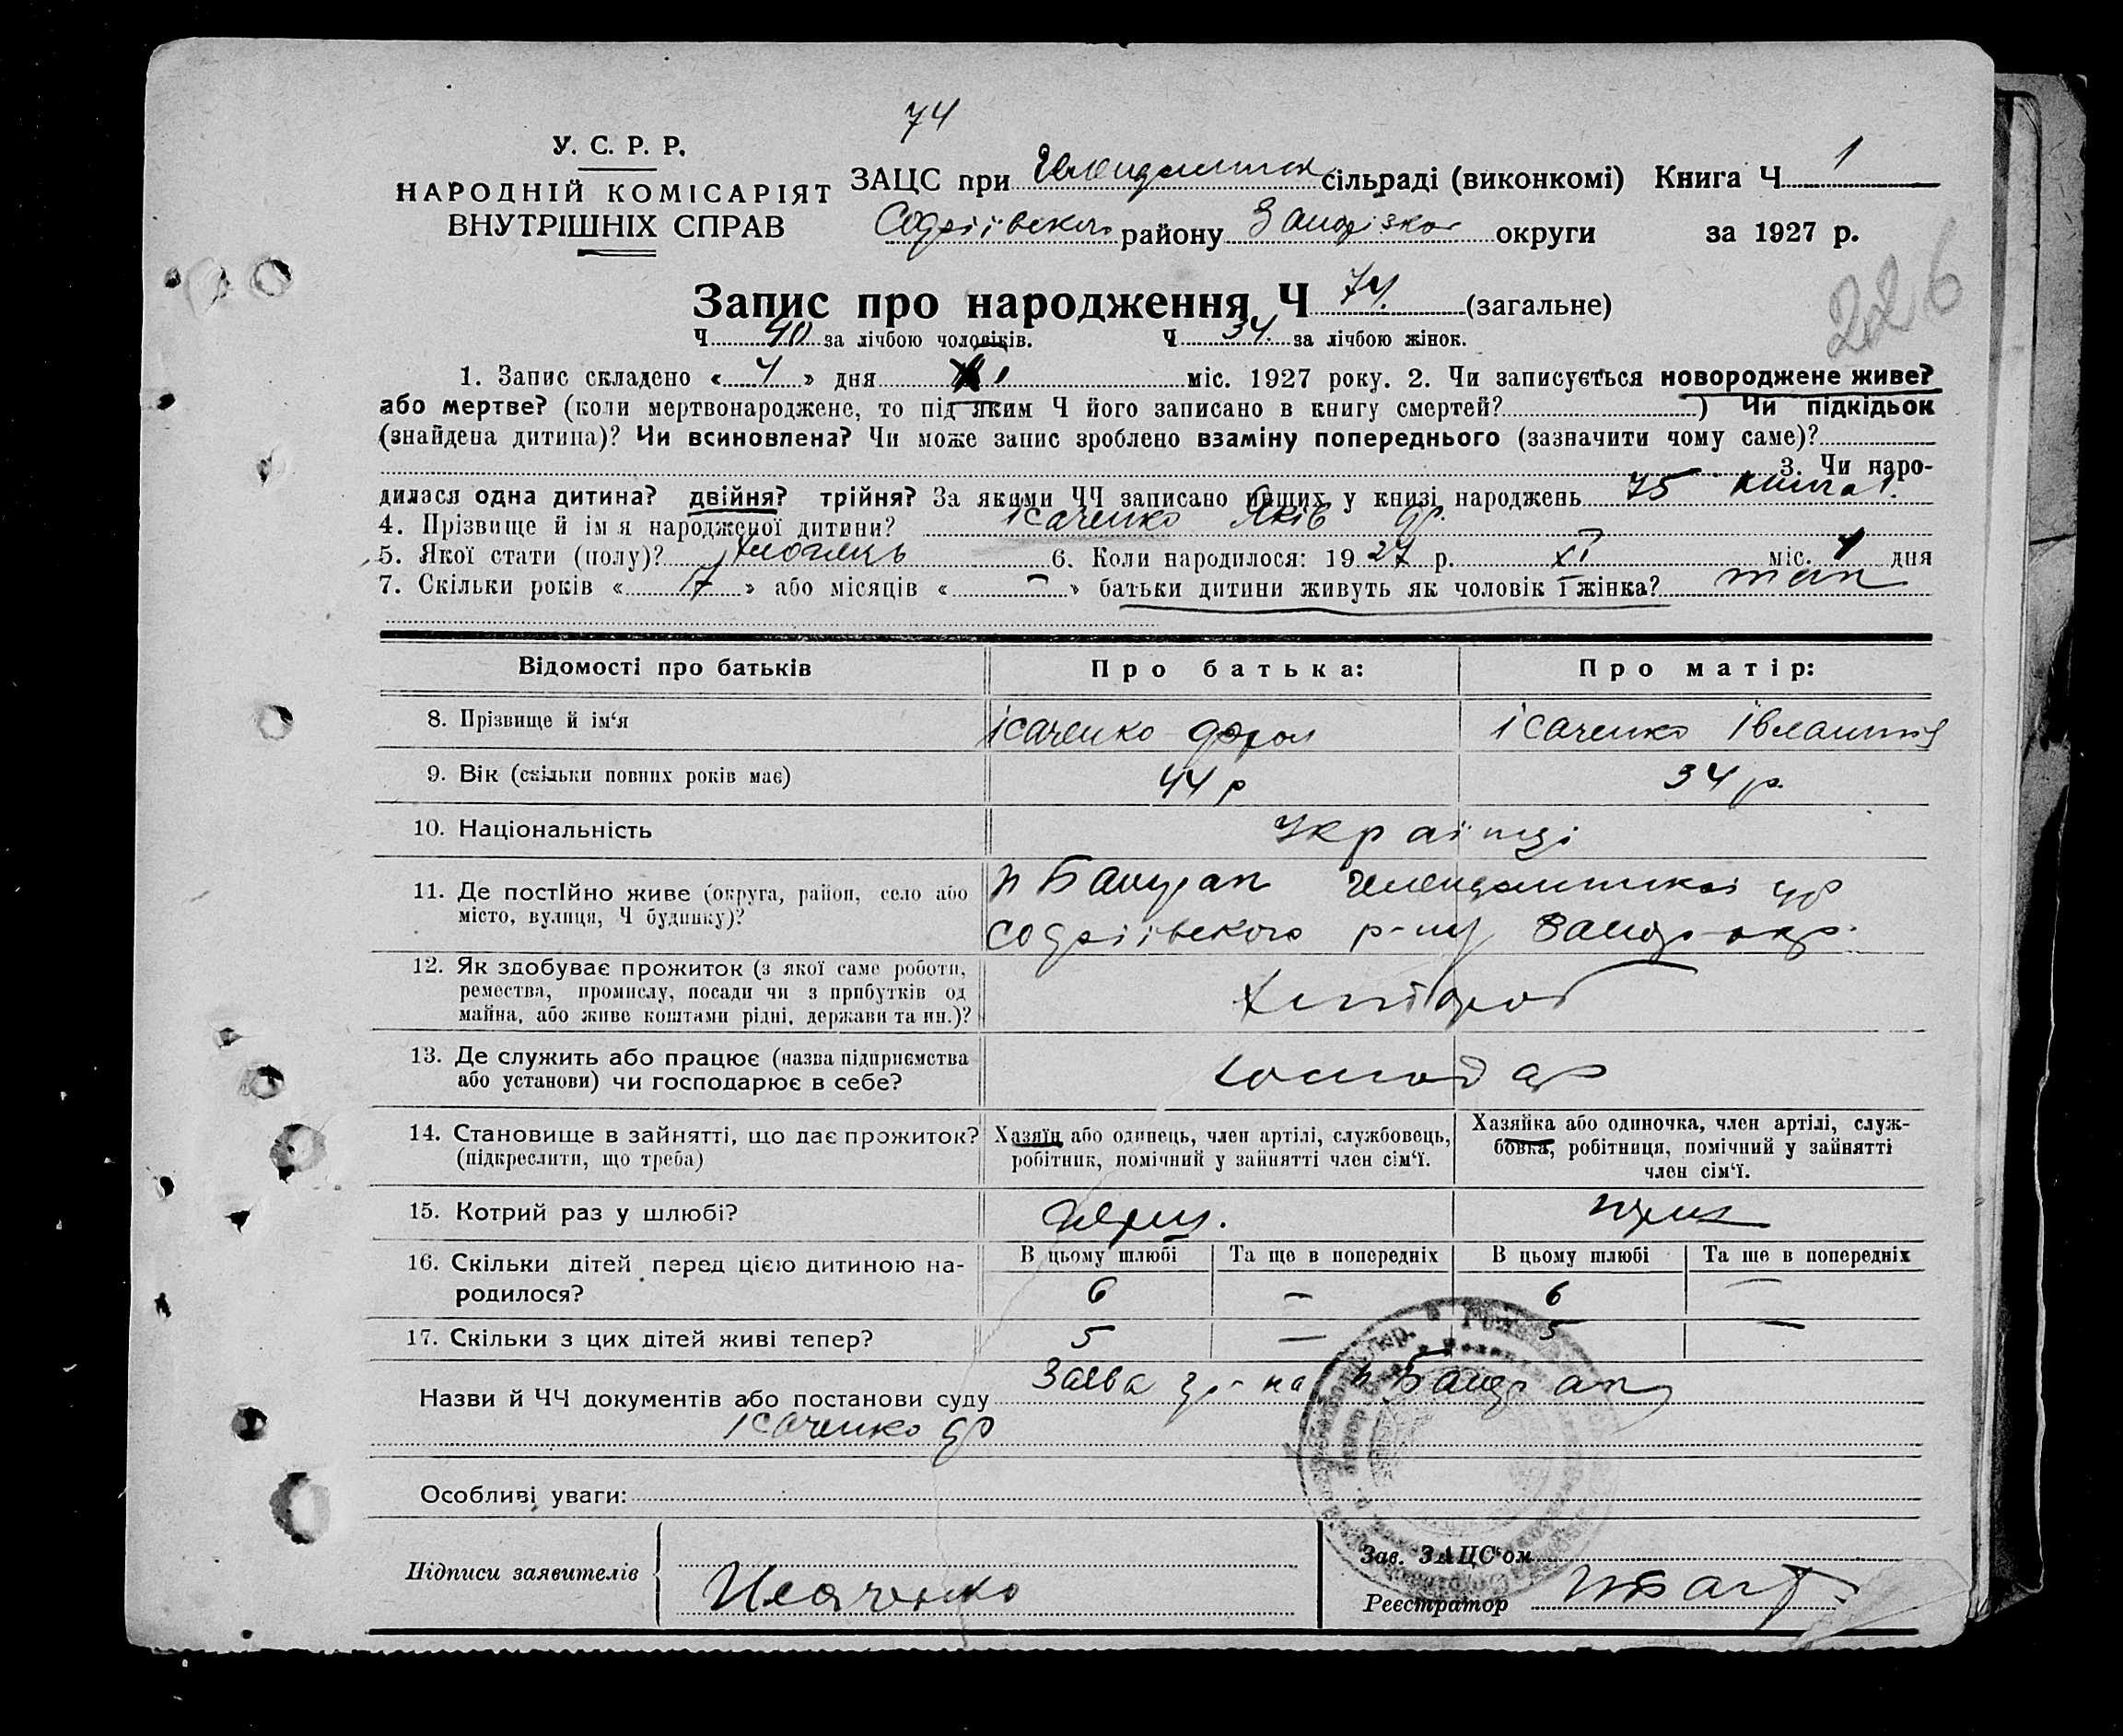 74
У. С. Р. Р.
НАРОДНІЙ КОМІСАРІЯТ
ВНУТРІШНІХ СПРАВ
ЗАЦС при сільраді (виконкомі) Книга Ч 1
району округи за 1927 р.
226
Запис про народження Ч 74. (загальне)
Ч 40 за лічбою чоловіків. Ч 34. за лічбою жінок.
1. Запис складено « 4 » дня міс. 1927 року. 2. Чи записується новороджене живе?
або мертве? (коли мертвонароджене, то під яким Ч його записано в книгу смертей? ) Чи підкідьок
(знайдена дитина)? Чи всиновлена? Чи може запис зроблено взаміну попереднього (зазначити чому саме)?
3. Чи наро-
дилася одна дитина? двійня? трійня? За якими ЧЧ записано инших у книзі народжень 75 книга 1.
4. Прізвище й ім я народженої дитини? Ісаченко Яків
5. Якої стати (полу)? 6. Коли народилося: 1927 р. XI міс. 4 дня
7. Скільки років « 17 » або місяців « – » батьки дитини живуть як чоловік і жінка? так
Відомості про батьків Про батька: Про матір:
8. Прізвище й ім‘я ісаченко ісаченко
9. Вік (скільки повних років має) 44 р 34 р.
10. Національність Українці
11. Де постійно живе (округа, район, село або
місто, вулиця, Ч будинку)?
р-ну
12. Як здобуває прожиток (з якої саме роботи,
ремества, промислу, посади чи з прибутків од
майна, або живе коштами рідні, держави та ин.)? Хлібороб
13. Де служить або працює (назва підприємства
або установи) чи господарює в себе? господар
14. Становище в зайнятті, що дає прожиток?
(підкреслити, що треба)
Хазяїн або одинець, член артілі, службовець,
робітник, помічний у зайнятті член сім‘ї.
Хазяйка або одиночка, член артілі, служ-
бовка, робітниця, помічний у зайнятті
член сім‘ї.
15. Котрий раз у шлюбі? перш.
16. Скільки дітей перед цією дитиною на-
родилося?
В цьому шлюбі Та ще в попередніх В цьому шлюбі Та ще в попередніх
6 – 6 –
17. Скільки з цих дітей живі тепер? 5 – 5 –
Назви й ЧЧ документів або постанови суду Заява гр-на
Ісаченко
Особливі уваги:
Підписи заявителів
Исаченко
Зав. ЗАЦС‘ом
Реєстратор